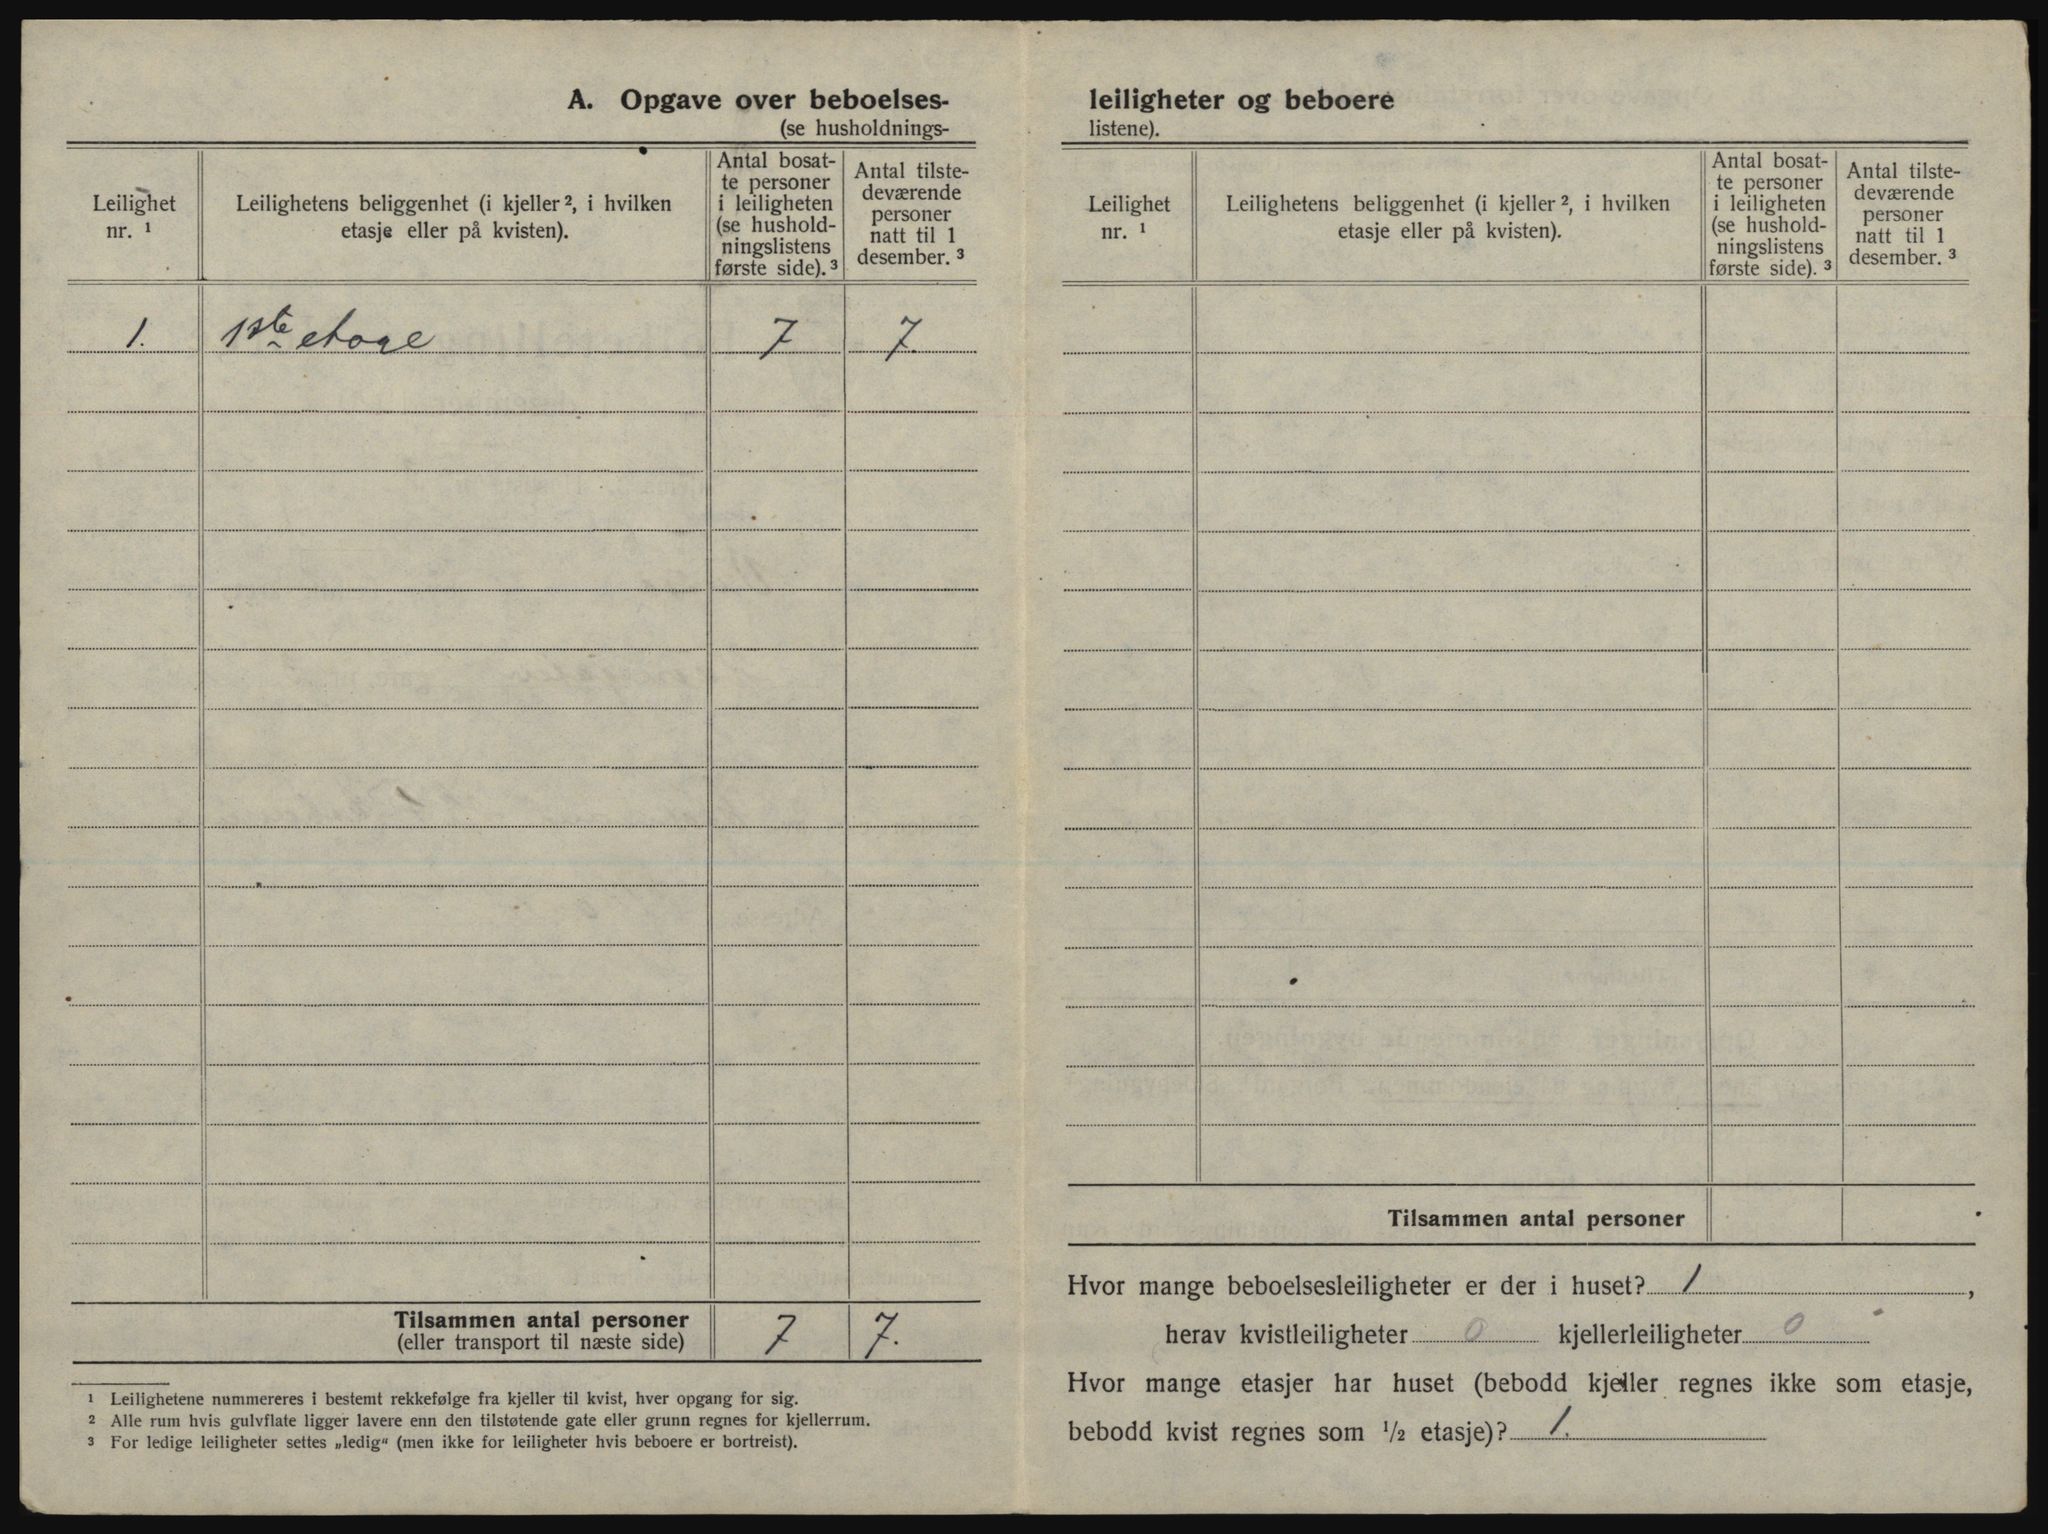 A. Opgave over beboelses-
(se husholdnings-
Leilighet
nr. 1
Leilighetens beliggenhet (i kjeller 2, i hvilken
etasje eller på kvisten).
Antal bosat-
te personer
i leiligheten
(se hushold-
ningslistens
første side). 3
Antal tilste-
deværende
personer
natt til 1
desember. 3
1. 1ste etage 7 7.
Tilsammen antal personer
(eller transport til næste side) 7 7.
1 Leilighetene nummereres i bestemt rekkefølge fra kjeller til kvist, hver opgang for sig.
2 Alle rum hvis gulvflate ligger lavere enn den tilstøtende gate eller grunn regnes for kjellerrum.
3 For ledige leiligheter settes „ledig“ (men ikke for leiligheter hvis beboere er bortreist).
leiligheter og beboere
listene).
Leilighet
nr. 1
Leilighetens beliggenhet (i kjeller 2, i hvilken
etasje eller på kvisten).
Antal bosat-
te personer
i leiligheten
(se hushold-
ningslistens
første side). 3
Antal tilste-
deværende
personer
natt til 1
desember. 3
Tilsammen antal personer
Hvor mange beboelsesleiligheter er der i huset? 1,
herav kvistleiligheter 0 kjellerleiligheter 0
Hvor mange etasjer har huset (bebodd kjeller regnes ikke som etasje,
bebodd kvist regnes som 1/2 etasje)? 1.